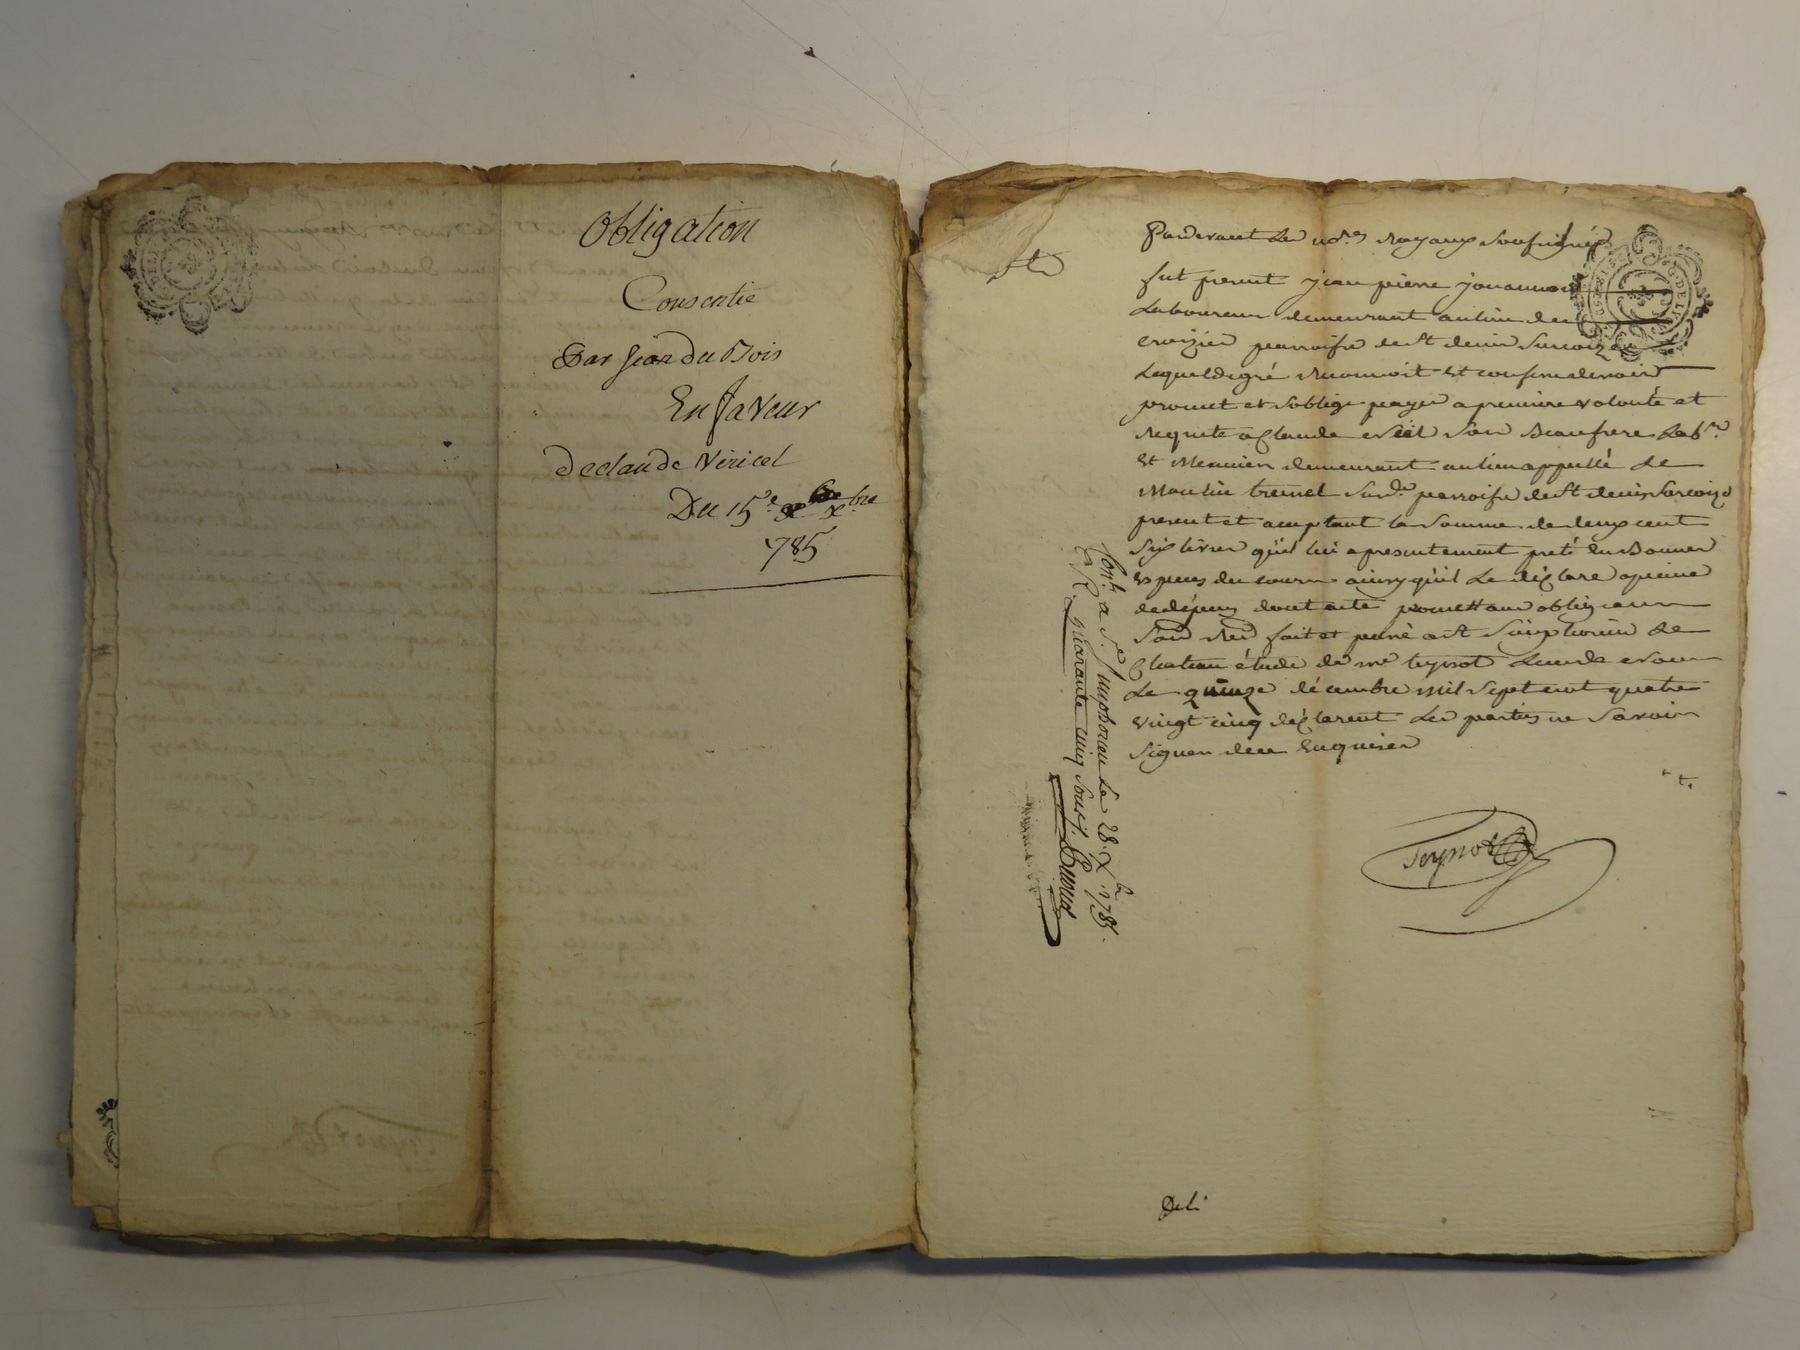 Obligation
Consentie
Par Jean du Bois
En faveur
de claude Véricel
Du 15e xbre
1785
Pardevant les no.res royaux soussignés
fut present jean pierre jouannon
Laboureur demeurant au lieu de
croizier parroisse de st denis sur coize
Lequel de gré reconnoit et confesse devoir
promet et soblige payer a premiere volonté et
requete a Claude son Beaufrere Labr.
et Meunier demeurant au lieu appellé Le
Moulin sur de. parroisse de st denis sur coize
present et acceptant la somme de deux cent
six livres quil lui a presentement preté en Bonnes
especes du cours ainsy quil Le déclare a peine
de dépens dont acte promettant obligeant
fait et passé a st simphorien Le
Chateau étude de me teyssot L'un de nous
Le quinze décembre mil sept cent quatre
vingt cinq déclarent Les parties ne savoir
signer de ce Enquises
Teyssot
Con.lé a St. Simphorien Le 28 Xb. 1785.
R. quarante cinq sous
Deli